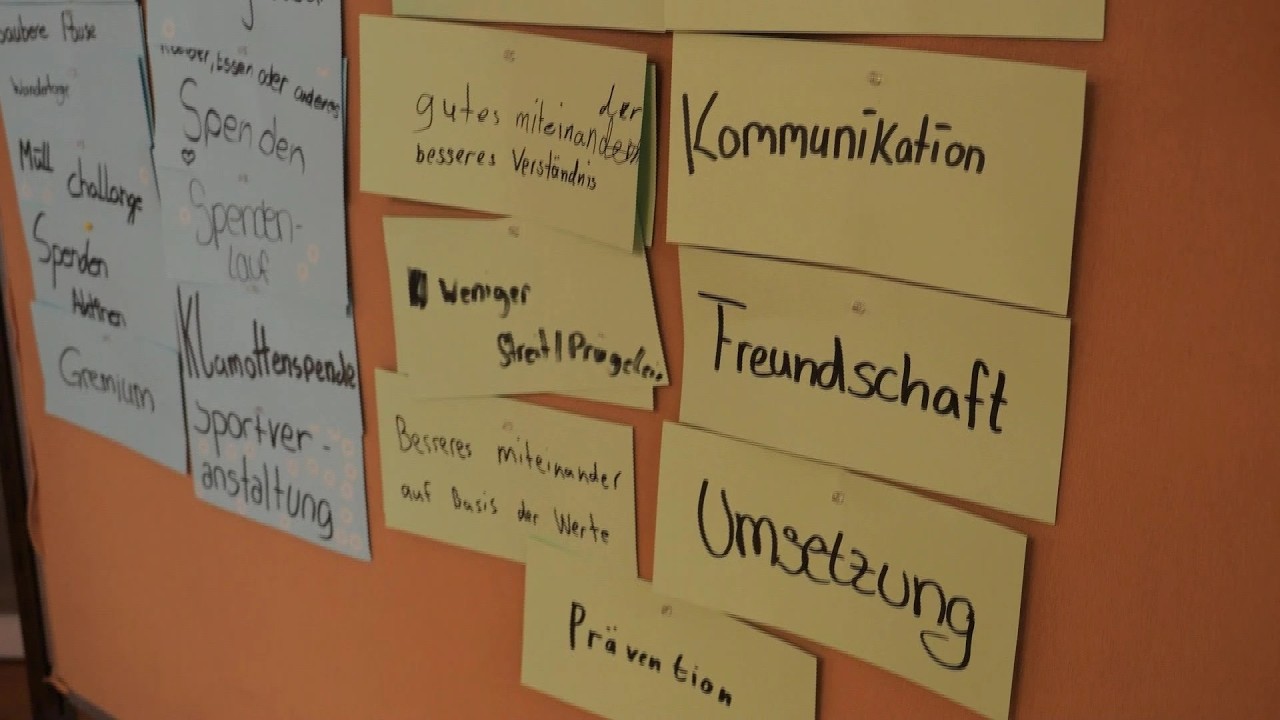 saubere Pause
Wandertage
Müll
challange
Spenden
Aktionen
Gremium
Essen oder anderes
Spenden
Spenden-
lauf
Klamottenspende
Sportver-
anstaltung
der
gutes miteinander
besseres Verständnis
Weniger
Streit/Prügelei
Besseres miteinander
auf Basis der Werte
Prävention
Kommunikation
Freundschaft
Umsetzung